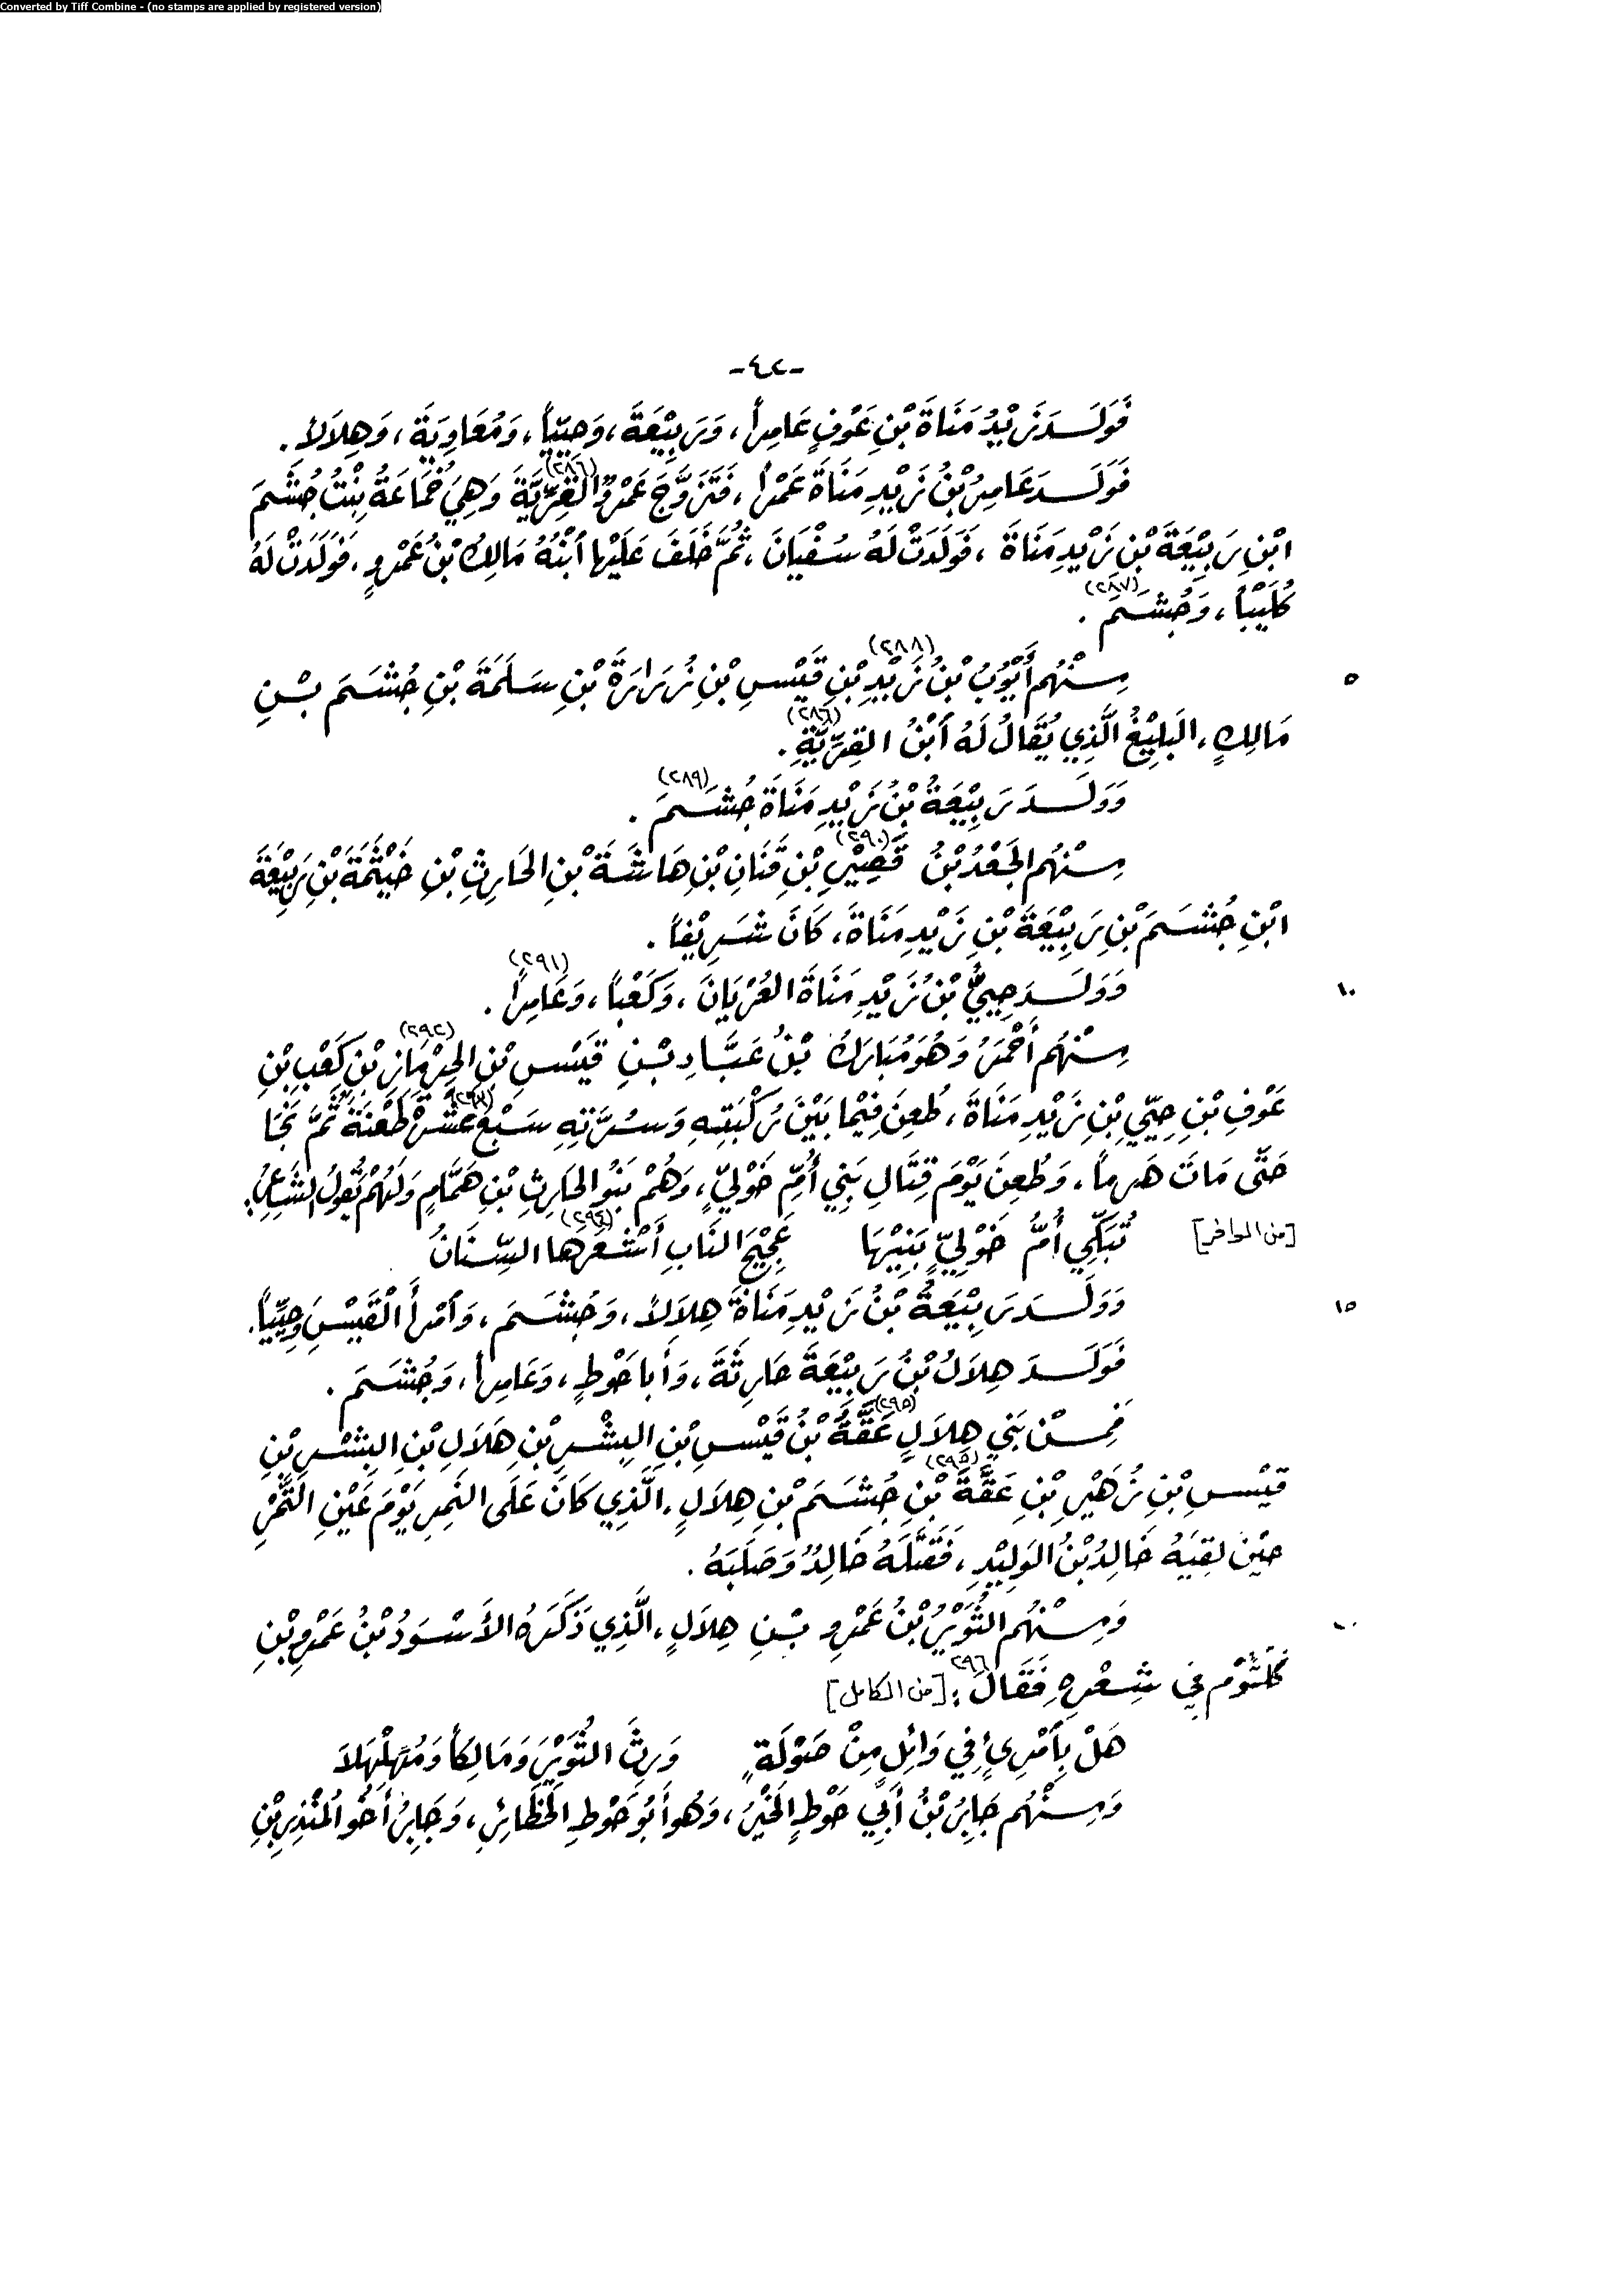 Converted by Tiff Combine - (no stamps are applied by registered version)
-٤٢-
فَوَلَدَ زَيْدُ مَنَاةَ بْنِ عَوْفٍ عَامِراً، وَرَبِيْعَةَ، وَحِيِّيّاً، وَمُعَاوِيَةَ، وَهِلَالاً.
فَوَلَدَ عَامِرُ بْنُ زَيْدِ مَنَاةَ عَمْراً، فَتَزَوَّجَ عَمْرٌو القِرِّيَّةَ (٢٨٦) وَهِيَ خُمَاعَةُ بِنْتُ جُشَمَ
ابْنِ رَبِيْعَةَ بْنِ زَيْدِ مَنَاةَ، فَوَلَدَتْ لَهُ سُفْيَانَ، ثُمَّ خَلَفَ عَلَيْها ٱبْنُهُ مَالِكُ بْنُ عَمْرٍو، فَوَلَدَتْ لَهُ
كُلَيْباً، وَجُشَمَ (٢٨٧).
٥ مِنْهُم أَيُّوبُ بْنُ زَيْدِ (٢٨٨) بْنِ قَيْسِ بْنِ زُرَارَةَ بْنِ سَلَمَةَ بْنِ جُشَمَ بْنِ
مَالِكٍ، البَلِيْغُ الَّذِي يُقَالُ لَهُ ٱبْنُ القِرِّيَّةِ (٢٨٦).
وَوَلَدَ رَبِيْعَةُ بْنُ زَيْدِ مَنَاةَ جُشَمَ (٢٨٩).
مِنْهُم الجَعْدُ بْنُ قَصِيْرِ (٢٩٠) بْنِ قَنَانِ بْنِ هَاشَةَ بْنِ الحَارِثِ بْنِ خَيْثَمَةَ بْنِ رَبِيْعَةَ
ابْنِ جُشَمَ بْنِ رَبِيْعَةَ بْنِ زَيْدِ مَنَاةَ، كَانَ شَرِيْفاً.
١٠ وَوَلَدَ حِيِيُّ بْنُ زَيْدِ مَنَاةَ العُرْيَانَ، وَكَعْباً، وَعَامِراً (٢٩١).
مِنْهُم أَحْمَرُ وَهُوَ مُبَارَكُ بْنُ عَبَّادِ بْنِ قَيْسِ بْنِ الحِرْمَازِ (٢٩٢) بْنِ كَعْبِ بْنِ
عَوْفِ بْنِ حِيِّي بْنِ زَيْدِ مَنَاةَ، طُعِنَ فِيْما بَيْنَ رُكْبَتِهِ وَسُرَّتِهِ سَبْعَ عَشْرَةَ (٢٩٣) طَعْنَةً ثُمَّ نَجَا
حَتَّى مَاتَ هَرِماً، وَطُعِنَ يَوْمَ قِتَالِ بَنِي أُمِّ خَوْلِيٍّ، وَهُمْ بَنُو الحَارِثِ بْنِ هَمَّامٍ وَلَهُمْ يَقُولُ الشَّاعِرُ:
[من الوافر] تُبَكِّي أُمُّ خَوْلِيٍّ بَنِيْهَا عَجِيْجَ النَابِ أَشْعَرَها (٢٩٤) السِّنَانُ
١٥ وَوَلَدَ رَبِيْعَةُ بْنُ زَيْدِ مَنَاةَ هِلَالاً، وَجُشَمَ، وَٱمْرأَ القَيْسِ وَحِيِّيّاً.
فَوَلَدَ هِلَالُ بْنُ رَبِيْعَةَ حَارِثَةَ، وَأَبا حَوْطٍ، وَعَامِراً، وَجُشَمَ.
فَمِنْ بَنِي هِلَالٍ عَقَّةُ (٢٩٥) بْنُ قَيْسِ بْنِ البِشْرِ بْنِ هَلَالِ بْنِ البِشْرِ بْنِ
قَيْسِ بْنِ زُهَيْرِ بْنِ عَقَّةَ (٢٩٥) بْنِ جُشَمَ بْنِ هِلَالٍ، الَّذِي كَانَ عَلَى النَمِرِ يَوْمَ عَيْنِ التَّمْرِ
حِيْنَ لَقِيَهُ خَالِدُ بْنُ الوَلِيْدِ، فَقَتَلَهُ خَالِدٌ وَصَلَبَهُ.
٢٠ وَمِنْهُم الثُوَيْرُ بْنُ عَمْرِو بْنِ هِلَالٍ، الَّذِي ذَكَرَهُ الأَسْوَدُ بْنُ عَمْرِو بْنِ
كُلْثُوْمٍ فِي شِعْرِهِ فَقَالَ ٢٩٦: [من الكامل]
هَلْ بِٱمْرِئٍ فِي وَائِلٍ مِنْ صَوْلَةٍ وَرِثَ الثُوَيْرَ وَمَالِكاً وَمُهَلْهِلَا
وَمِنْهُم جَابِرُ بْنُ أَبِي حَوْطٍ الخَيْرِ، وَهُو أَبُو حَوْطِ الحَظَائِرِ، وَجَابِرُ أَخُو المُنْذِرِ بْنِ